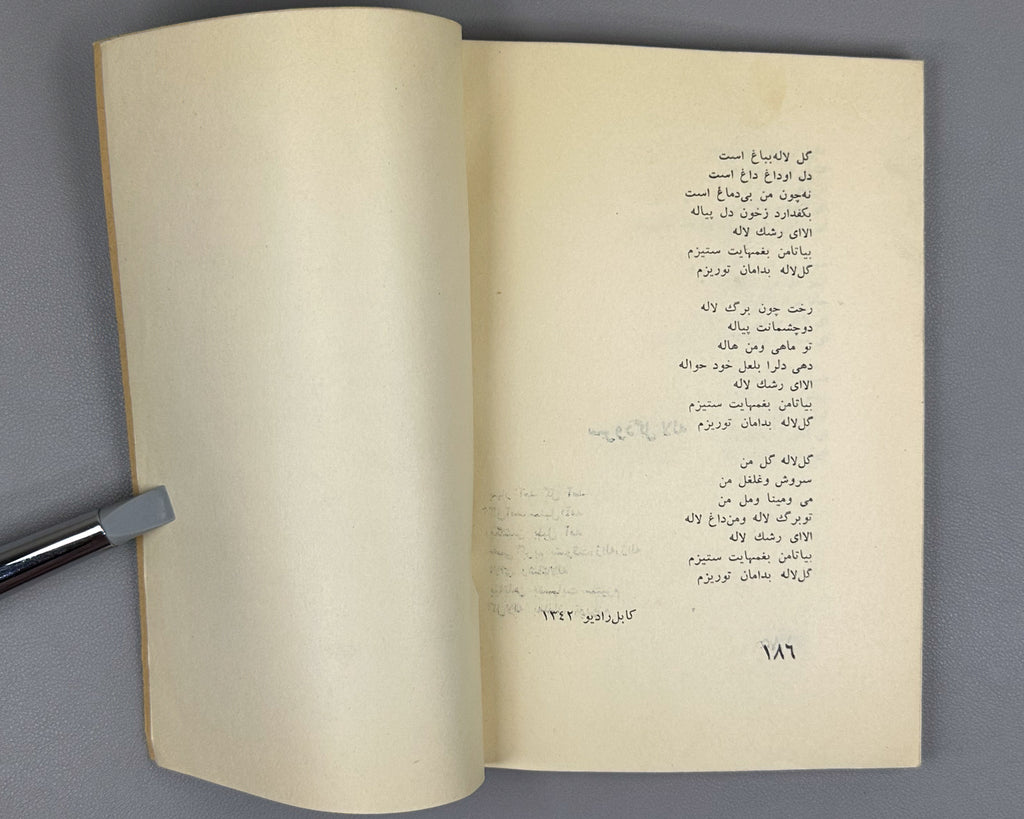 گل لاله‌بباغ است
دل اوداغ داغ است
نه‌چون من بی‌دماغ است
بکفدارد زخون دل پیاله
الاای رشك لاله
بیاتامن بغمهایت ستیزم
گل‌لاله بدامان توریزم
رخت چون برگ لاله
دوچشمانت پیاله
تو ماهی ومن هاله
دهی دلرا بلعل خود حواله
الاای رشك لاله
بیاتامن بغمهایت ستیزم
گل‌لاله بدامان توریزم
گل‌لاله گل من
سروش وغلغل من
می ومینا ومل من
توبرگ لاله ومن‌داغ لاله
الاای رشك لاله
بیاتامن بغمهایت ستیزم
گل‌لاله بدامان توریزم
کابل‌رادیو ١٣٤٢
١٨٦